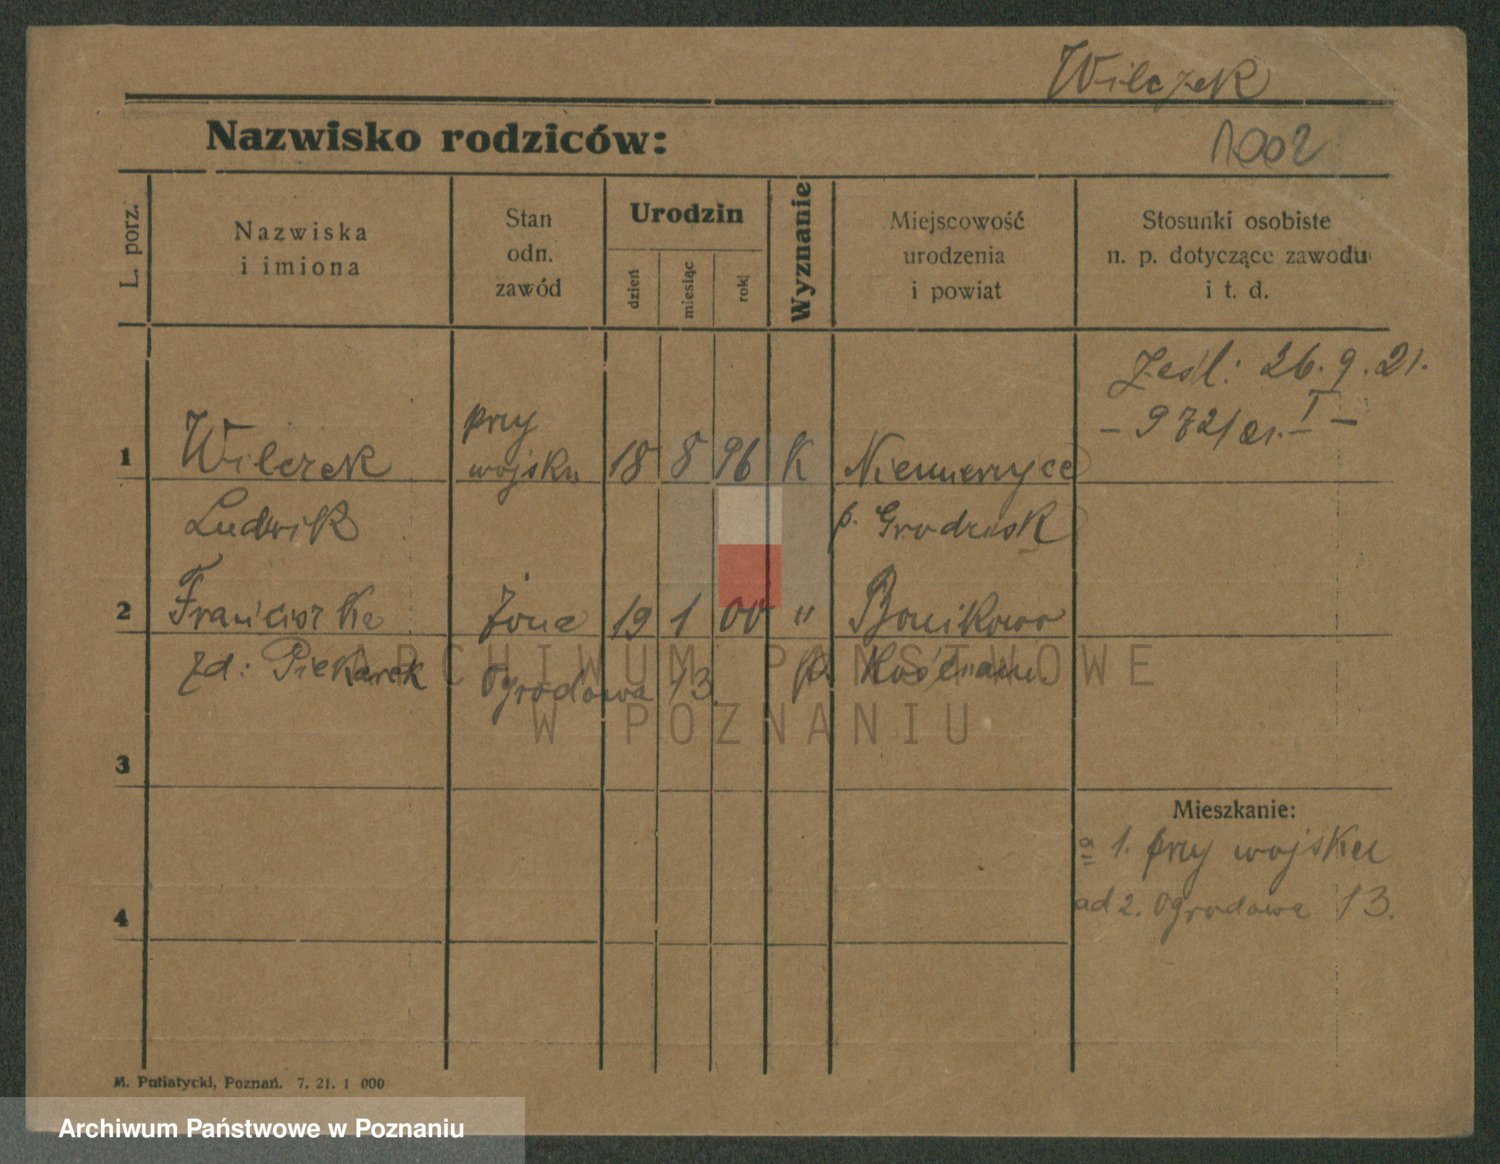 Wilczek
Nazwisko rodziców:
1002
L. porz.
Nazwiska
i imiona
Stan
odn.
zawód
Urodzin
dzień
miesiąc
rok
Wyznanie
Miejscowość
urodzenia
i powiat
Stosunki osobiste
n. p. dotyczące zawodu
i t. d.
Zesl: 26.9.21.
- 972/21. I -
1 Wilczek przy wojsku 18 8 96 K Niemierzyce
Ludwik p. Grodzisk
2 Franciszka żona 19 1 00 " Bonikowo
zd: Piekarek Ogrodowa 13 p. Kościan
ARCHIWUM PAŃSTWOWE
W POZNANIU
3
Mieszkanie:
1. przy wojsku
4
ad 2. Ogrodowa 13.
M. Putiatycki, Poznań. 7. 21. 1 000
Archiwum Państwowe w Poznaniu